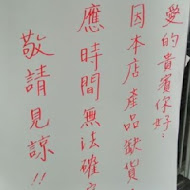 愛的貴賓你好:
因本店產品缺貨
應時間無法確定
敬請見諒!!